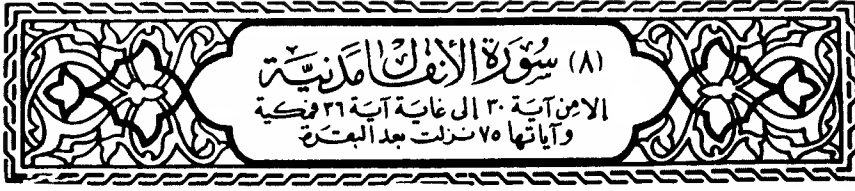 (٨) سُورَة الأنفال مَدنيَّة
إلا مِن آية ٣٠ إلى غاية آية ٣٦ فمكية
وآياتها ٧٥ نزلت بعد البقرة